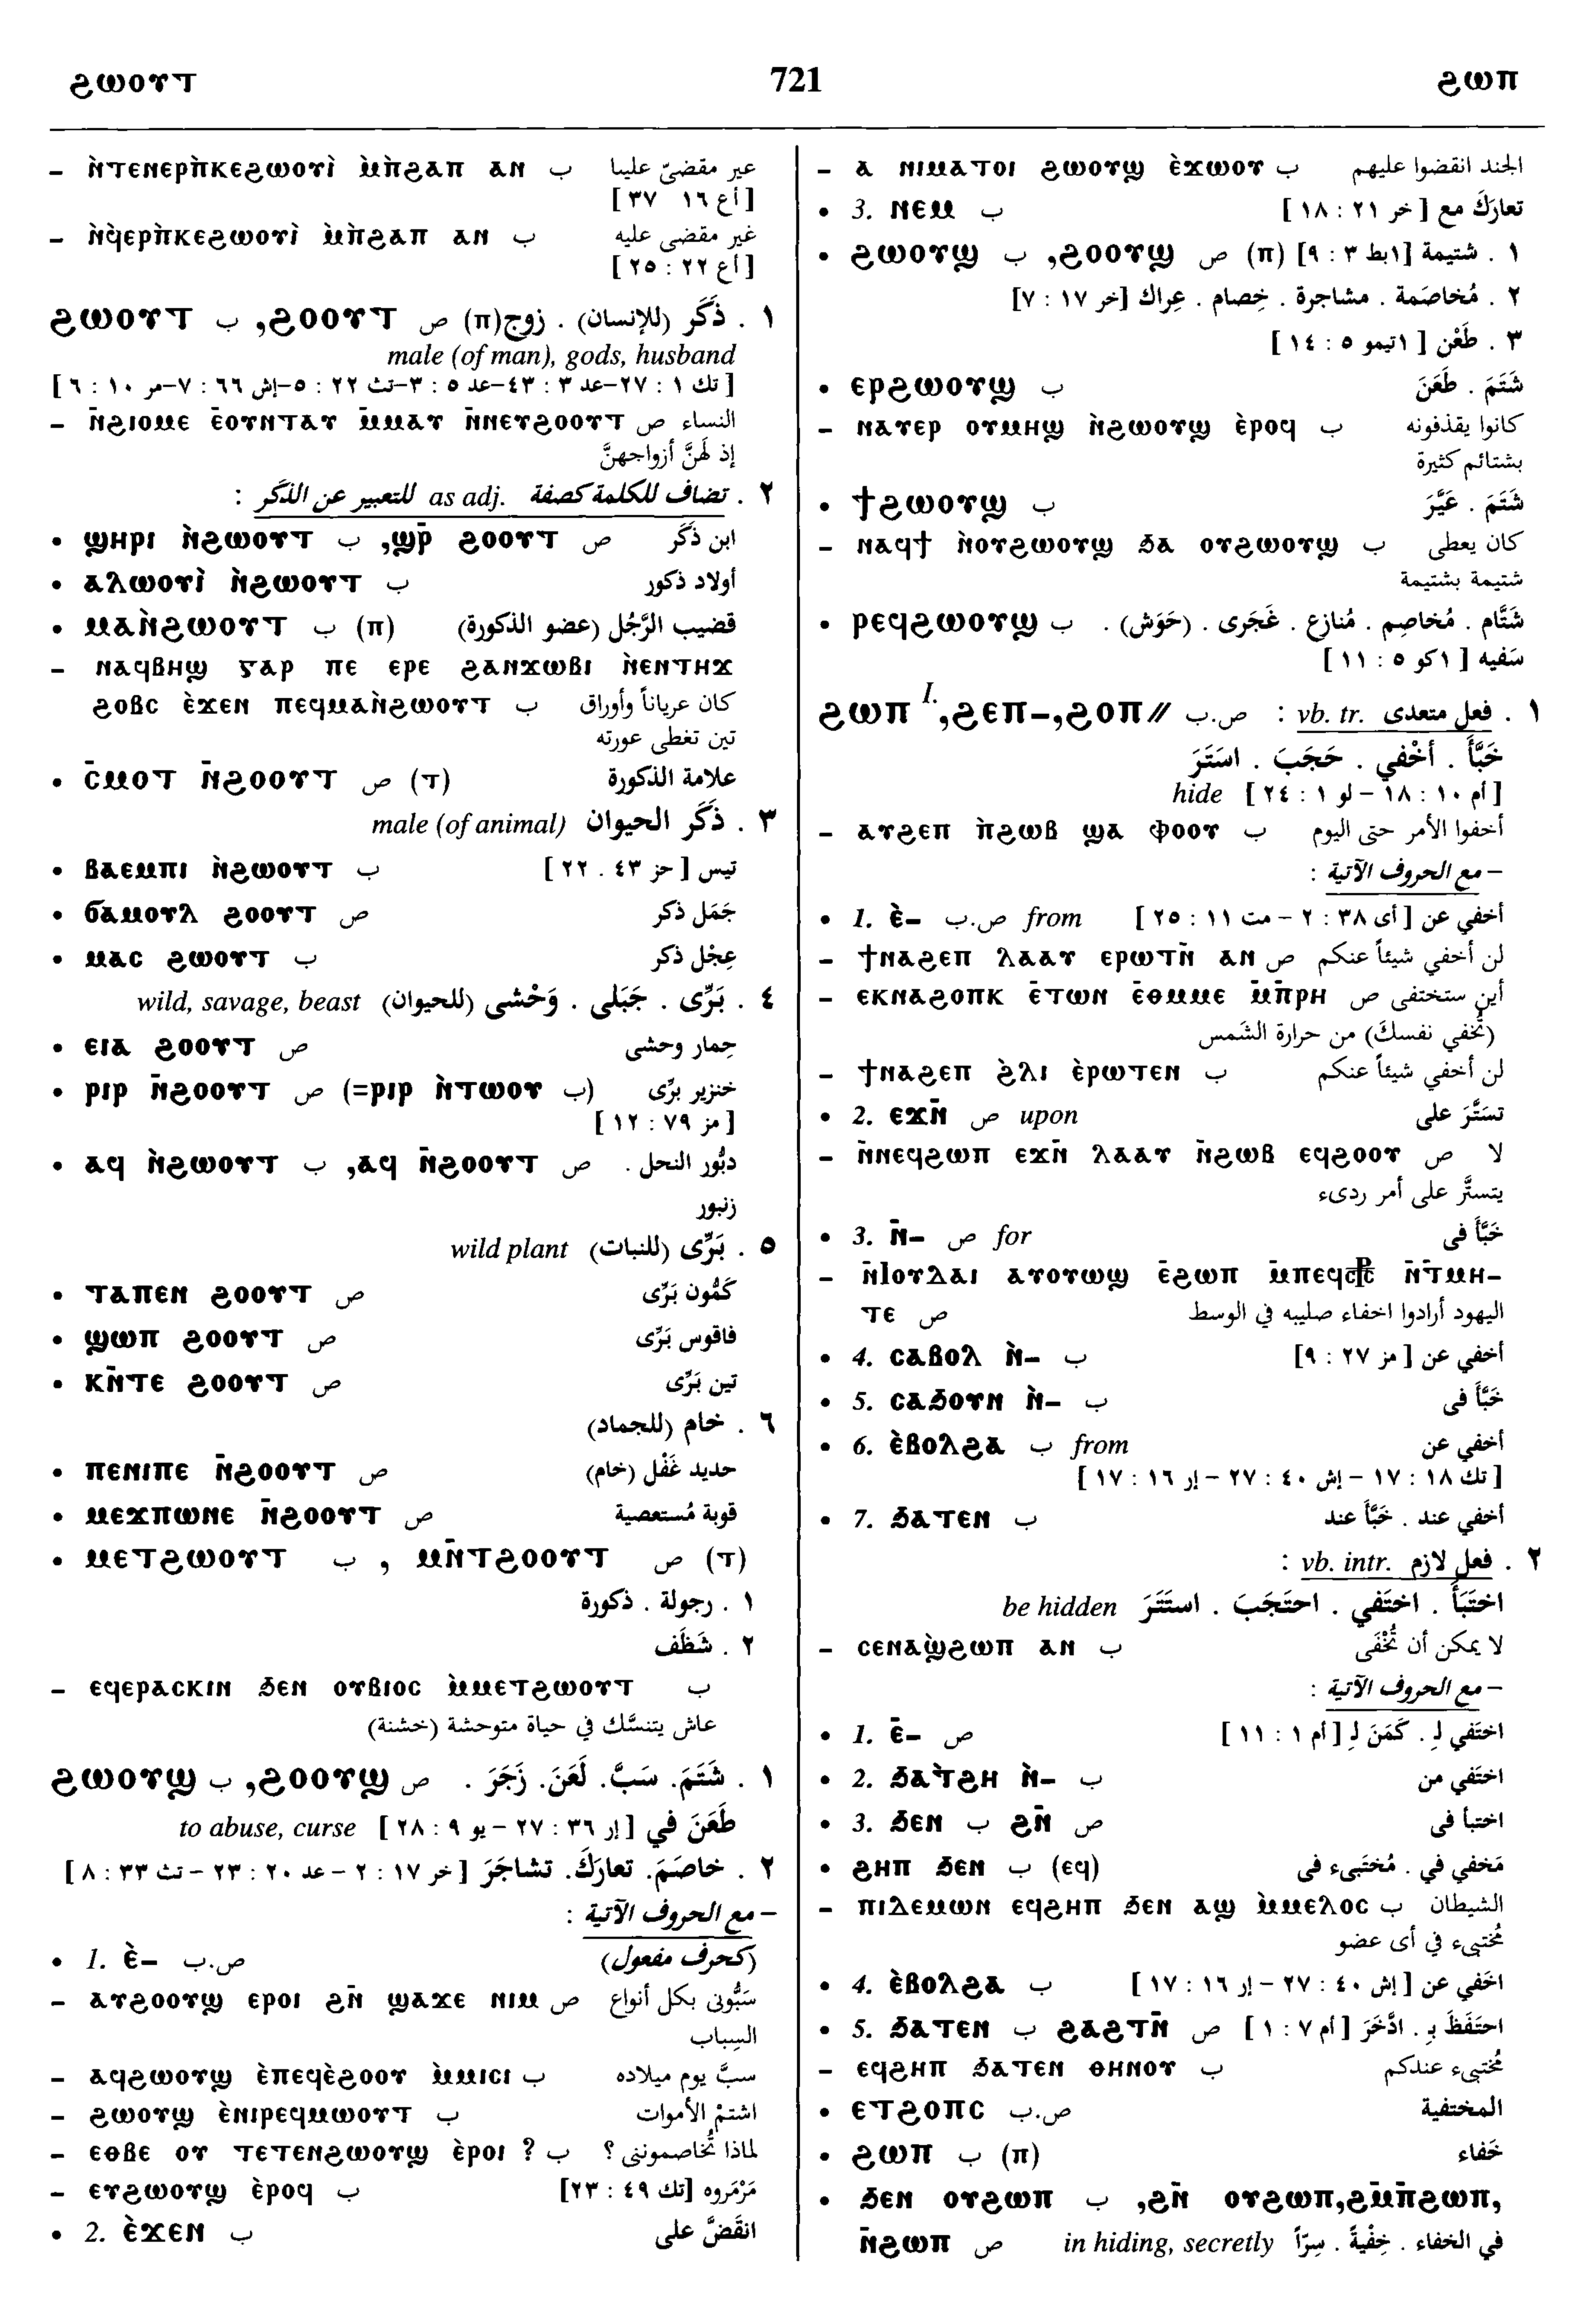 ϩⲱⲟⲩⲧ 721 ϩⲱⲡ
– ⲛ̀ⲧⲉⲛⲉⲣⲡ̀ⲕⲉϩⲱⲟⲩⲓ̀ ⲙ̀ⲡ̀ϩⲁⲡ ⲁⲛ ب غير مقضىّ علينا
[أع ١٦ ٣٧]
– ⲛ̀ϥⲉⲣⲡ̀ⲕⲉϩⲱⲟⲩⲓ̀ ⲙ̀ⲡ̀ϩⲁⲡ ⲁⲛ ب غير مقضى عليه
[أع ٢٢ : ٢٥]
ϩⲱⲟⲩⲧ ب ,ϩⲟⲟⲩⲧ ص (ⲡ) ١ . ذَكَر (للإنسان) . زوج
male (of man), gods, husband
[تك ١ : ٢٧–عد ٣ : ٤٣–عد ٥ : ٣–تث ٢٢ : ٥–إش ٦٦ : ٧–مر ١٠ : ٦]
– ⲛ̄ϩⲓⲟⲙⲉ ⲉ̄ⲟⲩⲛⲧⲁⲩ ⲙ̄ⲙⲁⲩ ⲛ̄ⲛⲉⲩϩⲟⲟⲩⲧ ص النساء
إذ لَهنَّ أزواجهنَّ
٢ . تضاف للكلمة كصفة as adj. للتعبير عن الذكَر :
• ϣⲏⲣⲓ ⲛ̀ϩⲱⲟⲩⲧ ب ,ϣⲣ̄ ϩⲟⲟⲩⲧ ص ابن ذكَر
• ⲁⲗⲱⲟⲩⲓ̀ ⲛ̀ϩⲱⲟⲩⲧ ب أولاد ذكور
• ⲙⲁⲛ̀ϩⲱⲟⲩⲧ ب (ⲡ) قضيب الرَّجُل (عضو الذكورة)
– ⲛⲁϥⲃⲏϣ ⲅⲁⲣ ⲡⲉ ⲉⲣⲉ ϩⲁⲛϫⲱⲃⲓ ⲛ̀ⲕⲉⲛⲧⲏϫ
ϩⲟⲃⲥ ⲉ̀ϫⲉⲛ ⲡⲉϥⲙⲁⲛ̀ϩⲱⲟⲩⲧ ب كان عرياناً وأوراق
تين تغطى عورته
• ⲥ̄ⲙⲟⲧ ⲛ̄ϩⲟⲟⲩⲧ ص (ⲧ) علامة الذكورة
٣ . ذَكَر الحيوان male (of animal)
• ⲃⲁⲉⲙⲡⲓ ⲛ̀ϩⲱⲟⲩⲧ ب تيس [حز ٤٣ . ٢٢]
• ϭⲁⲙⲟⲩⲗ ϩⲟⲟⲩⲧ ص جَمَل ذكر
• ⲙⲁⲥ ϩⲱⲟⲩⲧ ب عِجْل ذكر
٤ . بَرِّى . جَبَلى . وَحْشى (للحيوان) wild, savage, beast
• ⲉⲓⲁ ϩⲟⲟⲩⲧ ص حِمار وحشى
• ⲣⲓⲣ ⲛ̄ϩⲟⲟⲩⲧ ص (=ⲣⲓⲣ ⲛ̀ⲧⲱⲟⲩ ب) خنزير برِّى
[مز ٧٩ : ١٢]
• ⲁϥ ⲛ̀ϩⲱⲟⲩⲧ ب ,ⲁϥ ⲛ̄ϩⲟⲟⲩⲧ ص دبُّور النحل .
زنبور
٥ . بَرِّى (للنبات) wild plant
• ⲧⲁⲡⲉⲛ ϩⲟⲟⲩⲧ ص كَمُّون بَرِّى
• ϣⲱⲡ ϩⲟⲟⲩⲧ ص فاقوس بَرِّى
• ⲕⲛ̄ⲧⲉ ϩⲟⲟⲩⲧ ص تين بَرِّى
٦ . خام (للجماد)
• ⲡⲉⲛⲓⲡⲉ ⲛ̄ϩⲟⲟⲩⲧ ص حديد غَفْل (خام)
• ⲙⲉϫⲡⲱⲛⲉ ⲛ̄ϩⲟⲟⲩⲧ ص قوبة مُستعصية
• ⲙⲉⲧϩⲱⲟⲩⲧ ب , ⲙⲛ̄ⲧϩⲟⲟⲩⲧ ص (ⲧ)
١ . رجولة . ذكورة
٢ . شَظَف
– ⲉϥⲉⲣⲁⲥⲕⲓⲛ ϧⲉⲛ ⲟⲩⲃⲓⲟⲥ ⲙ̀ⲙⲉⲧϩⲱⲟⲩⲧ ب
عاش يتنسَّك في حياة متوحشة (خشنة)
ϩⲱⲟⲩϣ ب ,ϩⲟⲟⲩϣ ص ١ . شَتَمَ. سَبَّ. لَعَنَ. زَجَرَ .
طَعَنَ في [إر ٣٦ : ٢٧ – يو ٩ : ٢٨] to abuse, curse
٢ . خاصَمَ. تعارَكَ. تشاجَرَ [خر ١٧ : ٢ – عد ٢٠ : ٢٣ – تث ٣٣ : ٨]
– مع الحروف الآتية :
• 1. ⲉ̀– ص.ب (كحرف مفعول)
– ⲁⲩϩⲟⲟⲩϣ ⲉⲣⲟⲓ ϩⲛ̄ ϣⲁϫⲉ ⲛⲓⲙ ص سَبُّونى بكل أنواع
السِباب
– ⲁϥϩⲱⲟⲩϣ ⲉ̀ⲡⲉϥⲉ̀ϩⲟⲟⲩ ⲙ̀ⲙⲓⲥⲓ ب سبَّ يوم ميلاده
– ϩⲱⲟⲩϣ ⲉ̀ⲛⲓⲣⲉϥⲙⲱⲟⲩⲧ ب اشتمْ الأموات
– ⲉⲑⲃⲉ ⲟⲩ ⲧⲉⲧⲉⲛϩⲱⲟⲩϣ ⲉ̀ⲣⲟⲓ ? ب لماذا تُخاصمونني ؟
– ⲉⲩϩⲱⲟⲩϣ ⲉ̀ⲣⲟϥ ب مَرْمَروه [تك ٤٩ : ٢٣]
• 2. ⲉ̀ϫⲉⲛ ب انقَضَّ على
– ⲁ ⲛⲓⲙⲁⲧⲟⲓ ϩⲱⲟⲩϣ ⲉ̀ϫⲱⲟⲩ ب الجند انقضوا عليهم
• 3. ⲛⲉⲙ ب تعارَكَ مع [خر ٢١ : ١٨]
• ϩⲱⲟⲩϣ ب ,ϩⲟⲟⲩϣ ص (ⲡ) ١ . شتيمة [١بط ٣ : ٩]
٢ . مُخاصَمة . مشاجرة . خِصام . عِراك [خر ١٧ : ٧]
٣ . طَعْن [١تيمو ٥ : ١٤]
• ⲉⲣϩⲱⲟⲩϣ ب شَتَمَ . طَعَنَ
– ⲛⲁⲩⲉⲣ ⲟⲩⲙⲏϣ ⲛ̀ϩⲱⲟⲩϣ ⲉ̀ⲣⲟϥ ب كانوا يقذفونه
بشتائم كثيرة
• ϯϩⲱⲟⲩϣ ب شَتَمَ . عَيَّرَ
– ⲛⲁϥϯ ⲛ̀ⲟⲩϩⲱⲟⲩϣ ϧⲁ ⲟⲩϩⲱⲟⲩϣ ب كان يعطى
شتيمة بشتيمة
• ⲣⲉϥϩⲱⲟⲩϣ ب شَتَّام . مُخاصِم . مُنازع . غَجَرى . (حَوَش) .
سَفيه [١كو ٥ : ١١]
ϩⲱⲡ I. ,ϩⲉⲡ–,ϩⲟⲡ// ص.ب : vb. tr. ١ . فعل متعدى
خَبَّأَ . أخْفي . حَجَبَ . استَرَ
hide [أم ١٠ : ١٨ – لو ١ : ٢٤]
– ⲁⲩϩⲉⲡ ⲡ̀ϩⲱⲃ ϣⲁ ⲫⲟⲟⲩ ب أخفوا الأمر حتى اليوم
– مع الحروف الآتية :
• 1. ⲉ̀– ص.ب from أخفي عن [أى ٣٨ : ٢ – مت ١١ : ٢٥]
– ϯⲛⲁϩⲉⲡ ⲗⲁⲁⲩ ⲉⲣⲱⲧⲛ̄ ⲁⲛ ص لن أخفي شيئاً عنكم
– ⲉⲕⲛⲁϩⲟⲡⲕ ⲉ̄ⲧⲱⲛ ⲉ̄ⲑⲙⲙⲉ ⲙ̄ⲡⲣⲏ ص أين ستختفى
(تُخفي نفسكَ) من حرارة الشمس
– ϯⲛⲁϩⲉⲡ ϩ̀ⲗⲓ ⲉ̀ⲣⲱⲧⲉⲛ ب لن أخفي شيئاً عنكم
• 2. ⲉϫⲛ̄ ص upon تسَتَّرَ على
– ⲛ̄ⲛⲉϥϩⲱⲡ ⲉϫⲛ̄ ⲗⲁⲁⲩ ⲛ̄ϩⲱⲃ ⲉϥϩⲟⲟⲩ ص لا
يتستَّر على أمر ردىء
• 3. ⲛ̄– ص for خَبَّأ فى
– ⲛ̄ⲓⲟⲩⲇⲁⲓ ⲁⲩⲟⲩⲱϣ ⲉ̄ϩⲱⲡ ⲙ̄ⲡⲉϥⲥ⳨ⲥ ⲛ̄ⲧⲙⲏ–
ⲧⲉ ص اليهود أرادوا اخفاء صليبه في الوسط
• 4. ⲥⲁⲃⲟⲗ ⲛ̀– ب أخفي عن [مز ٢٧ : ٩]
• 5. ⲥⲁϧⲟⲩⲛ ⲛ̀– ب خَبَّأ فى
• 6. ⲉ̀ⲃⲟⲗϩⲁ ب from أخفي عن
[تك ١٨ : ١٧ – إش ٤٠ : ٢٧ – إر ١٦ : ١٧]
• 7. ϧⲁⲧⲉⲛ ب أخفي عند . خَبَّأ عند
٢ . فعل لازم vb. intr. :
اختَبَأَ . اختَفي . احتَجَبَ . استَتَرَ be hidden
– ⲥⲉⲛⲁϣ̀ϩⲱⲡ ⲁⲛ ب لا يمكن أن تُخْفَى
– مع الحروف الآتية :
• 1. ⲉ̄– ص اختَفي لـِ . كَمَنَ لـِ [أم ١ : ١١]
• 2. ϧⲁⲧ̀ϩⲏ ⲛ̀– ب اختَفي من
• 3. ϧⲉⲛ ب ϩⲛ̄ ص اختبأ فى
• ϩⲏⲡ ϧⲉⲛ ب (ⲉϥ) مَخفي في . مُختَبىء فى
– ⲡⲓⲇⲉⲙⲱⲛ ⲉϥϩⲏⲡ ϧⲉⲛ ⲁϣ ⲙ̀ⲙⲉⲗⲟⲥ ب الشيطان
مُختبىء في أى عضو
• 4. ⲉ̀ⲃⲟⲗϩⲁ ب اختفي عن [إش ٤٠ : ٢٧ – إر ١٦ : ١٧]
• 5. ϧⲁⲧⲉⲛ ب ϩⲁϩⲧⲛ̄ ص احتَفَظَ بـِ . ادَّخَرَ [أم ٧ : ١]
– ⲉϥϩⲏⲡ ϧⲁⲧⲉⲛ ⲑⲏⲛⲟⲩ ب مُختبىء عندكم
• ⲉⲧϩⲟⲡⲥ ص.ب المختفية
• ϩⲱⲡ ب (ⲡ) خَفاء
• ϧⲉⲛ ⲟⲩϩⲱⲡ ب ,ϩⲛ̄ ⲟⲩϩⲱⲡ,ϩⲙ̄ⲡ̄ϩⲱⲡ,
ⲛ̄ϩⲱⲡ ص in hiding, secretly في الخفاء . خِفْيةً . سِرّاً